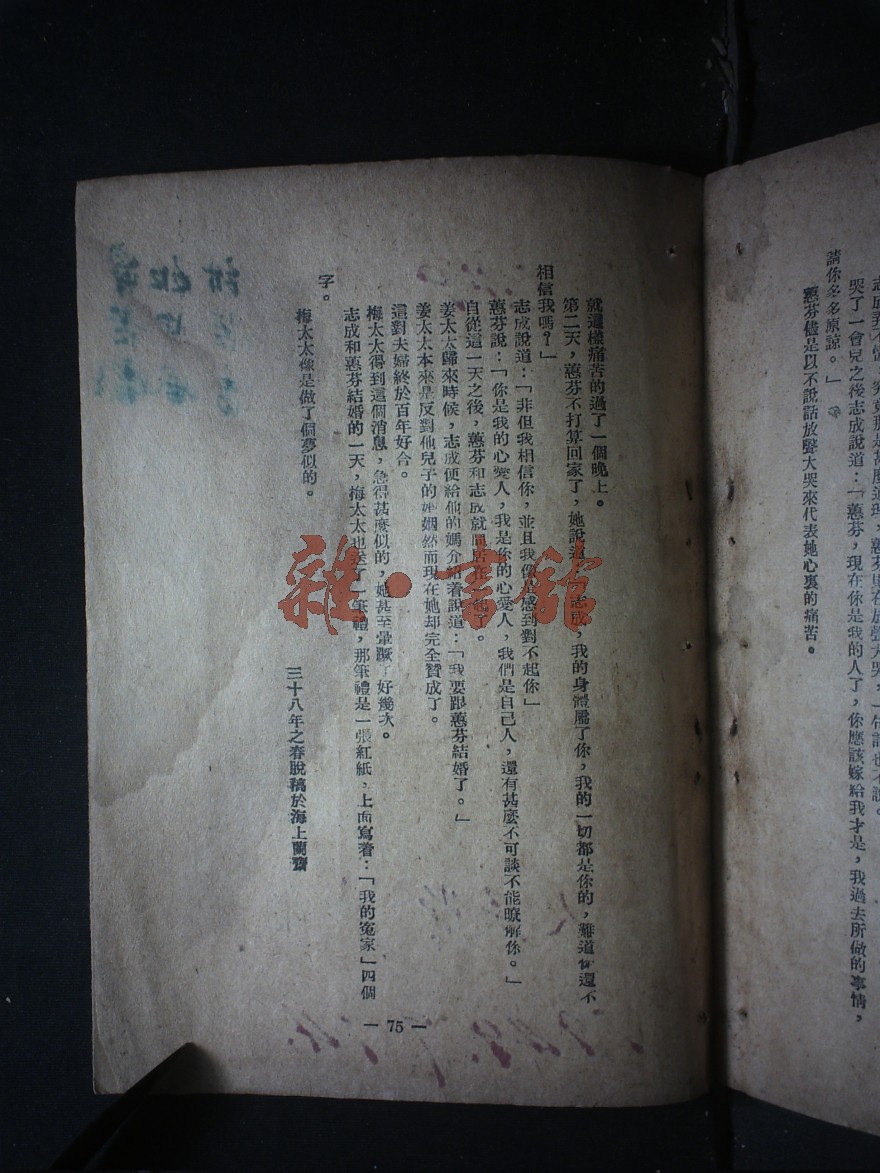 哭了一會兒之後志成說道：「蕙芬，現在你是我的人了，你應該嫁給我才是，我過去所做的事情，
請你多多原諒。」
蕙芬儘是以不說話放聲大哭來代表她心裏的痛苦。
就這樣痛苦的過了一個晚上。
第二天，蕙芬不打算回家了，她說道：「志成，我的身體屬了你，我的一切都是你的，難道你還不
相信我嗎？」
志成說道：「非但我相信你，並且我像是感到對不起你」
蕙芬說：「你是我的心愛人，我是你的心愛人，我們是自己人，還有甚麼不可談不能瞭解你。」
自從這一天之後，蕙芬和志成就同居在一起了。
姜太太歸來時候，志成便給他的媽介紹着說道：「我要跟蕙芬結婚了。」
姜太太本來是反對他兒子的婚姻然而現在她却完全贊成了。
這對夫婦終於百年好合。
梅太太得到這個消息，急得甚麼似的，她甚至暈蹶了好幾次。
志成和蕙芬結婚的一天，梅太太也送了一筆禮，那筆禮是一張紅紙，上面寫着：「我的寃家」四個
字。
梅太太像是做了個夢似的。
三十八年之春脫稿於海上蘭齋
— 75 —
雜·書館